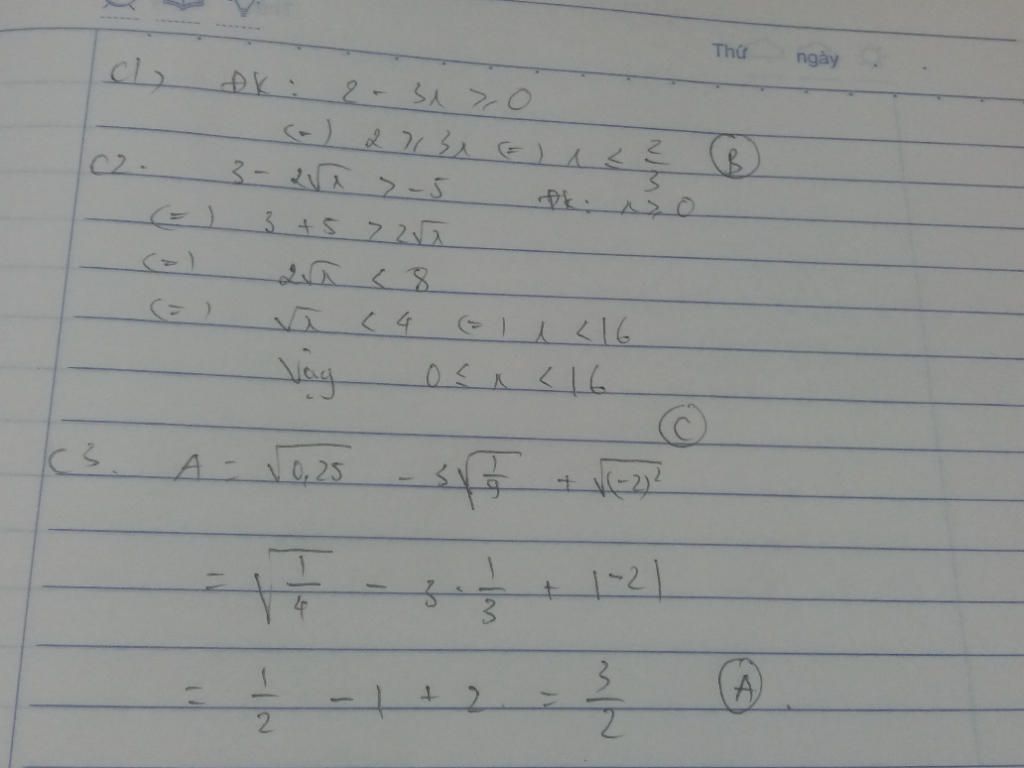 Thứ ngày
C1) ĐK: 2 - 3x ≥ 0
(=) 2 ≥ 3x (=) x ≤ 2/3 (B)
C2. 3 - 2√x > -5 ĐK: x ≥ 0
(=) 3 + 5 > 2√x
(=) 2√x < 8
(=) √x < 4 (=) x < 16
Vậy 0 ≤ x < 16
(C)
C3. A = √0,25 - 3√(1/9) + √(-2)²
= √(1/4) - 3 . 1/3 + |-2|
= 1/2 - 1 + 2 = 3/2 (A).